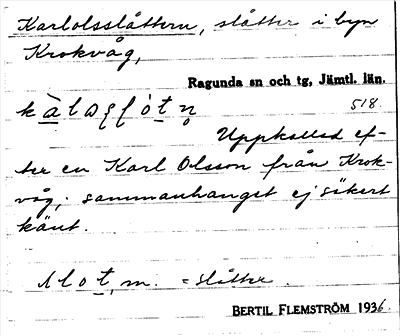 Karlolsslåttern, slåtter i byn
Krokvåg,
Ragunda sn och tg, Jämtl. län.
518.
Uppkallad ef-
ter en Karl Olsson från Krok-
våg; sammanhanget ej säkert
känt.
slot, m. = slåtter.
BERTIL FLEMSTRÖM 1936.